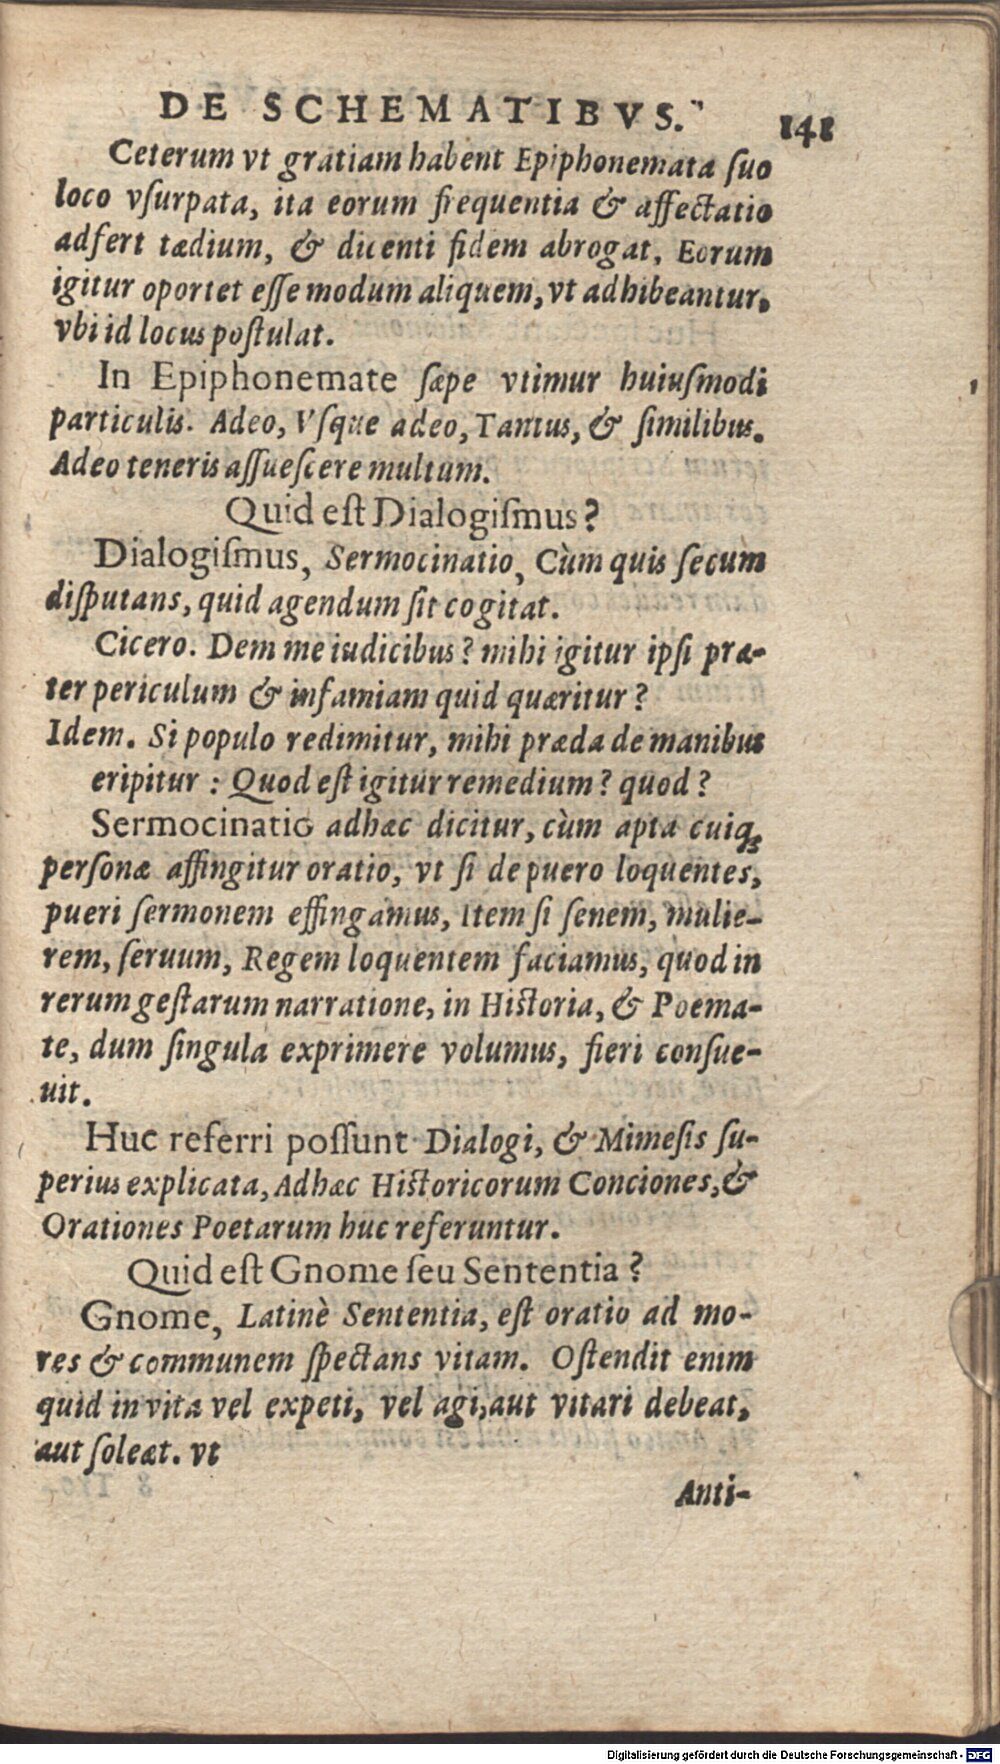 DE SCHEMATIBVS. 141
Ceterum vt gratiam habent Epiphonemata ſuo
loco vſurpata, ita eorum frequentia & affectatio
adfert tædium, & dicenti fidem abrogat, Eorum
igitur oportet eſſe modum aliquem, vt adhibeantur,
vbi id locus poſtulat.
In Epiphonemate ſæpe vtimur huiuſmodi
particulis. Adeo, Vſque adeo, Tantus, & ſimilibus.
Adeo teneris aſſueſcere multum.
Quid eſt Dialogiſmus?
Dialogiſmus, Sermocinatio, Cùm quis ſecum
diſputans, quid agendum ſit cogitat.
Cicero. Dem me iudicibus? mihi igitur ipſi præ-
ter periculum & infamiam quid quæritur?
Idem. Si populo redimitur, mihi præda de manibus
eripitur: Quod eſt igitur remedium? quod?
Sermocinatio adhæc dicitur, cùm apta cuiqꝫ
perſonæ affingitur oratio, vt ſi de puero loquentes,
pueri ſermonem effingamus, Item ſi ſenem, mulie-
rem, ſeruum, Regem loquentem faciamus, quod in
rerum geſtarum narratione, in Hiſtoria, & Poema-
te, dum ſingula exprimere volumus, fieri conſue-
uit.
Huc referri poſſunt Dialogi, & Mimeſis ſu-
perius explicata, Adhæc Hiſtoricorum Conciones, &
Orationes Poetarum huc referuntur.
Quid eſt Gnome ſeu Sententia?
Gnome, Latinè Sententia, eſt oratio ad mo-
res & communem ſpectans vitam. Oſtendit enim
quid in vita vel expeti, vel agi, aut vitari debeat,
aut ſoleat. vt
Anti-
Digitalisierung gefördert durch die Deutsche Forschungsgemeinschaft - DFG